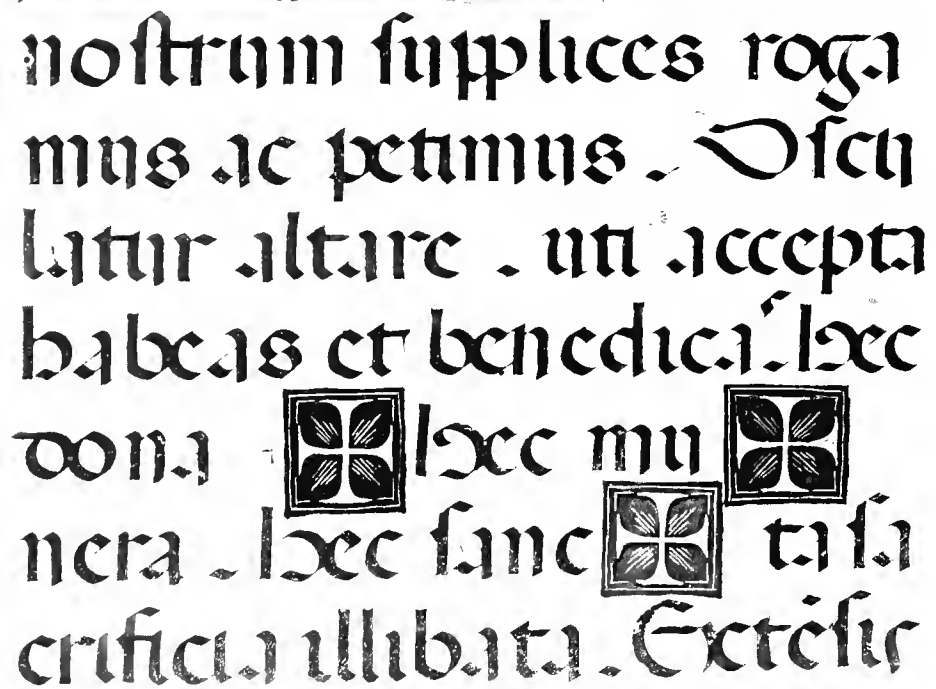 noſtrum ſupplices roga
mus ac petimus. Oſcu
latur altare. uti accepta
habeas et benedicas. hec
dona ✠ hec mu ✠
nera. hec ſanc ✠ ta ſa
crificia illibata. Extēſis